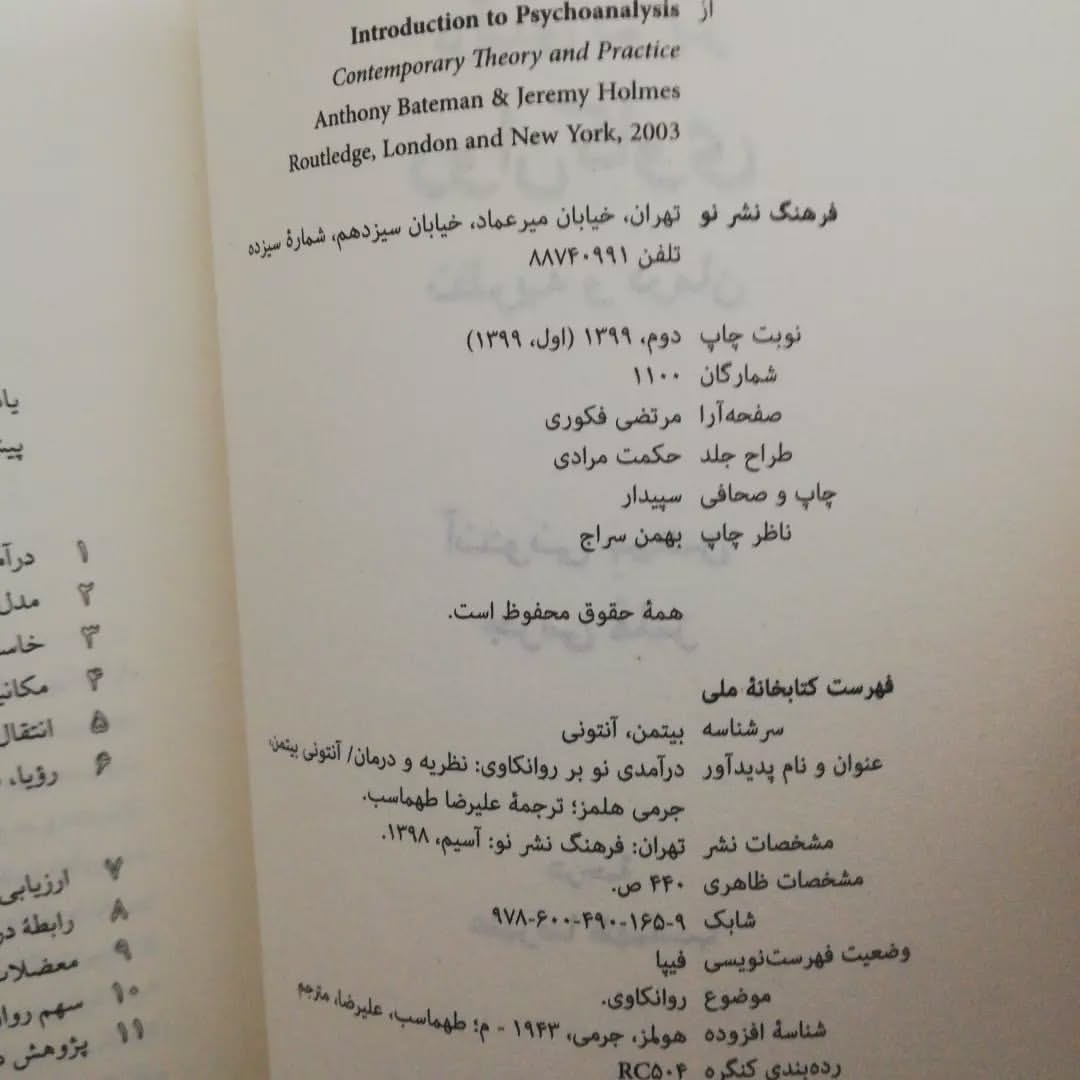 از Introduction to Psychoanalysis
Contemporary Theory and Practice
Anthony Bateman & Jeremy Holmes
Routledge, London and New York, 2003
فرهنگ نشر نو تهران، خیابان میرعماد، خیابان سیزدهم، شمارۀ سیزده
تلفن ۸۸۷۴۰۹۹۱
نوبت چاپ دوم، ۱۳۹۹ (اول، ۱۳۹۹)
شمارگان ۱۱۰۰
صفحه‌آرا مرتضی فکوری
طراح جلد حکمت مرادی
چاپ و صحافی سپیدار
ناظر چاپ بهمن سراج
همۀ حقوق محفوظ است.
فهرست کتابخانۀ ملی
سرشناسه بیتمن، آنتونی
عنوان و نام پدیدآور درآمدی نو بر روانکاوی: نظریه و درمان/ آنتونی بیتمن،
جرمی هلمز؛ ترجمۀ علیرضا طهماسب.
مشخصات نشر تهران: فرهنگ نشر نو: آسیم، ۱۳۹۸.
مشخصات ظاهری ۴۴۰ ص.
شابک ۹۷۸-۶۰۰-۴۹۰-۱۶۵-۹
وضعیت فهرست‌نویسی فیپا
موضوع روانکاوی.
شناسۀ افزوده هولمز، جرمی، ۱۹۴۳ - م؛ طهماسب، علیرضا، مترجم
رده‌بندی کنگره RC۵۰۴
۱
۲ مدل
۳
۴
۵ انتقال
۶ رؤیا،
۷ ارزیابی
۸ رابطۀ
۹ معضلات
۱۰ سهم
۱۱ پژوهش